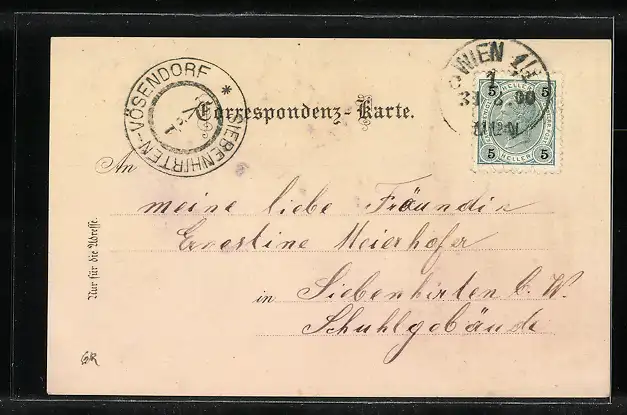 SIEBENHIRTEN-VÖSENDORF *
WIEN
Correspondenz-Karte.
5 5
HELLER
5 5
An
meine liebe Fräundin
Ernestine Meierhofer
in Siebenhirten b. W.
Schuhlgebäude
Nur für die Adresse.